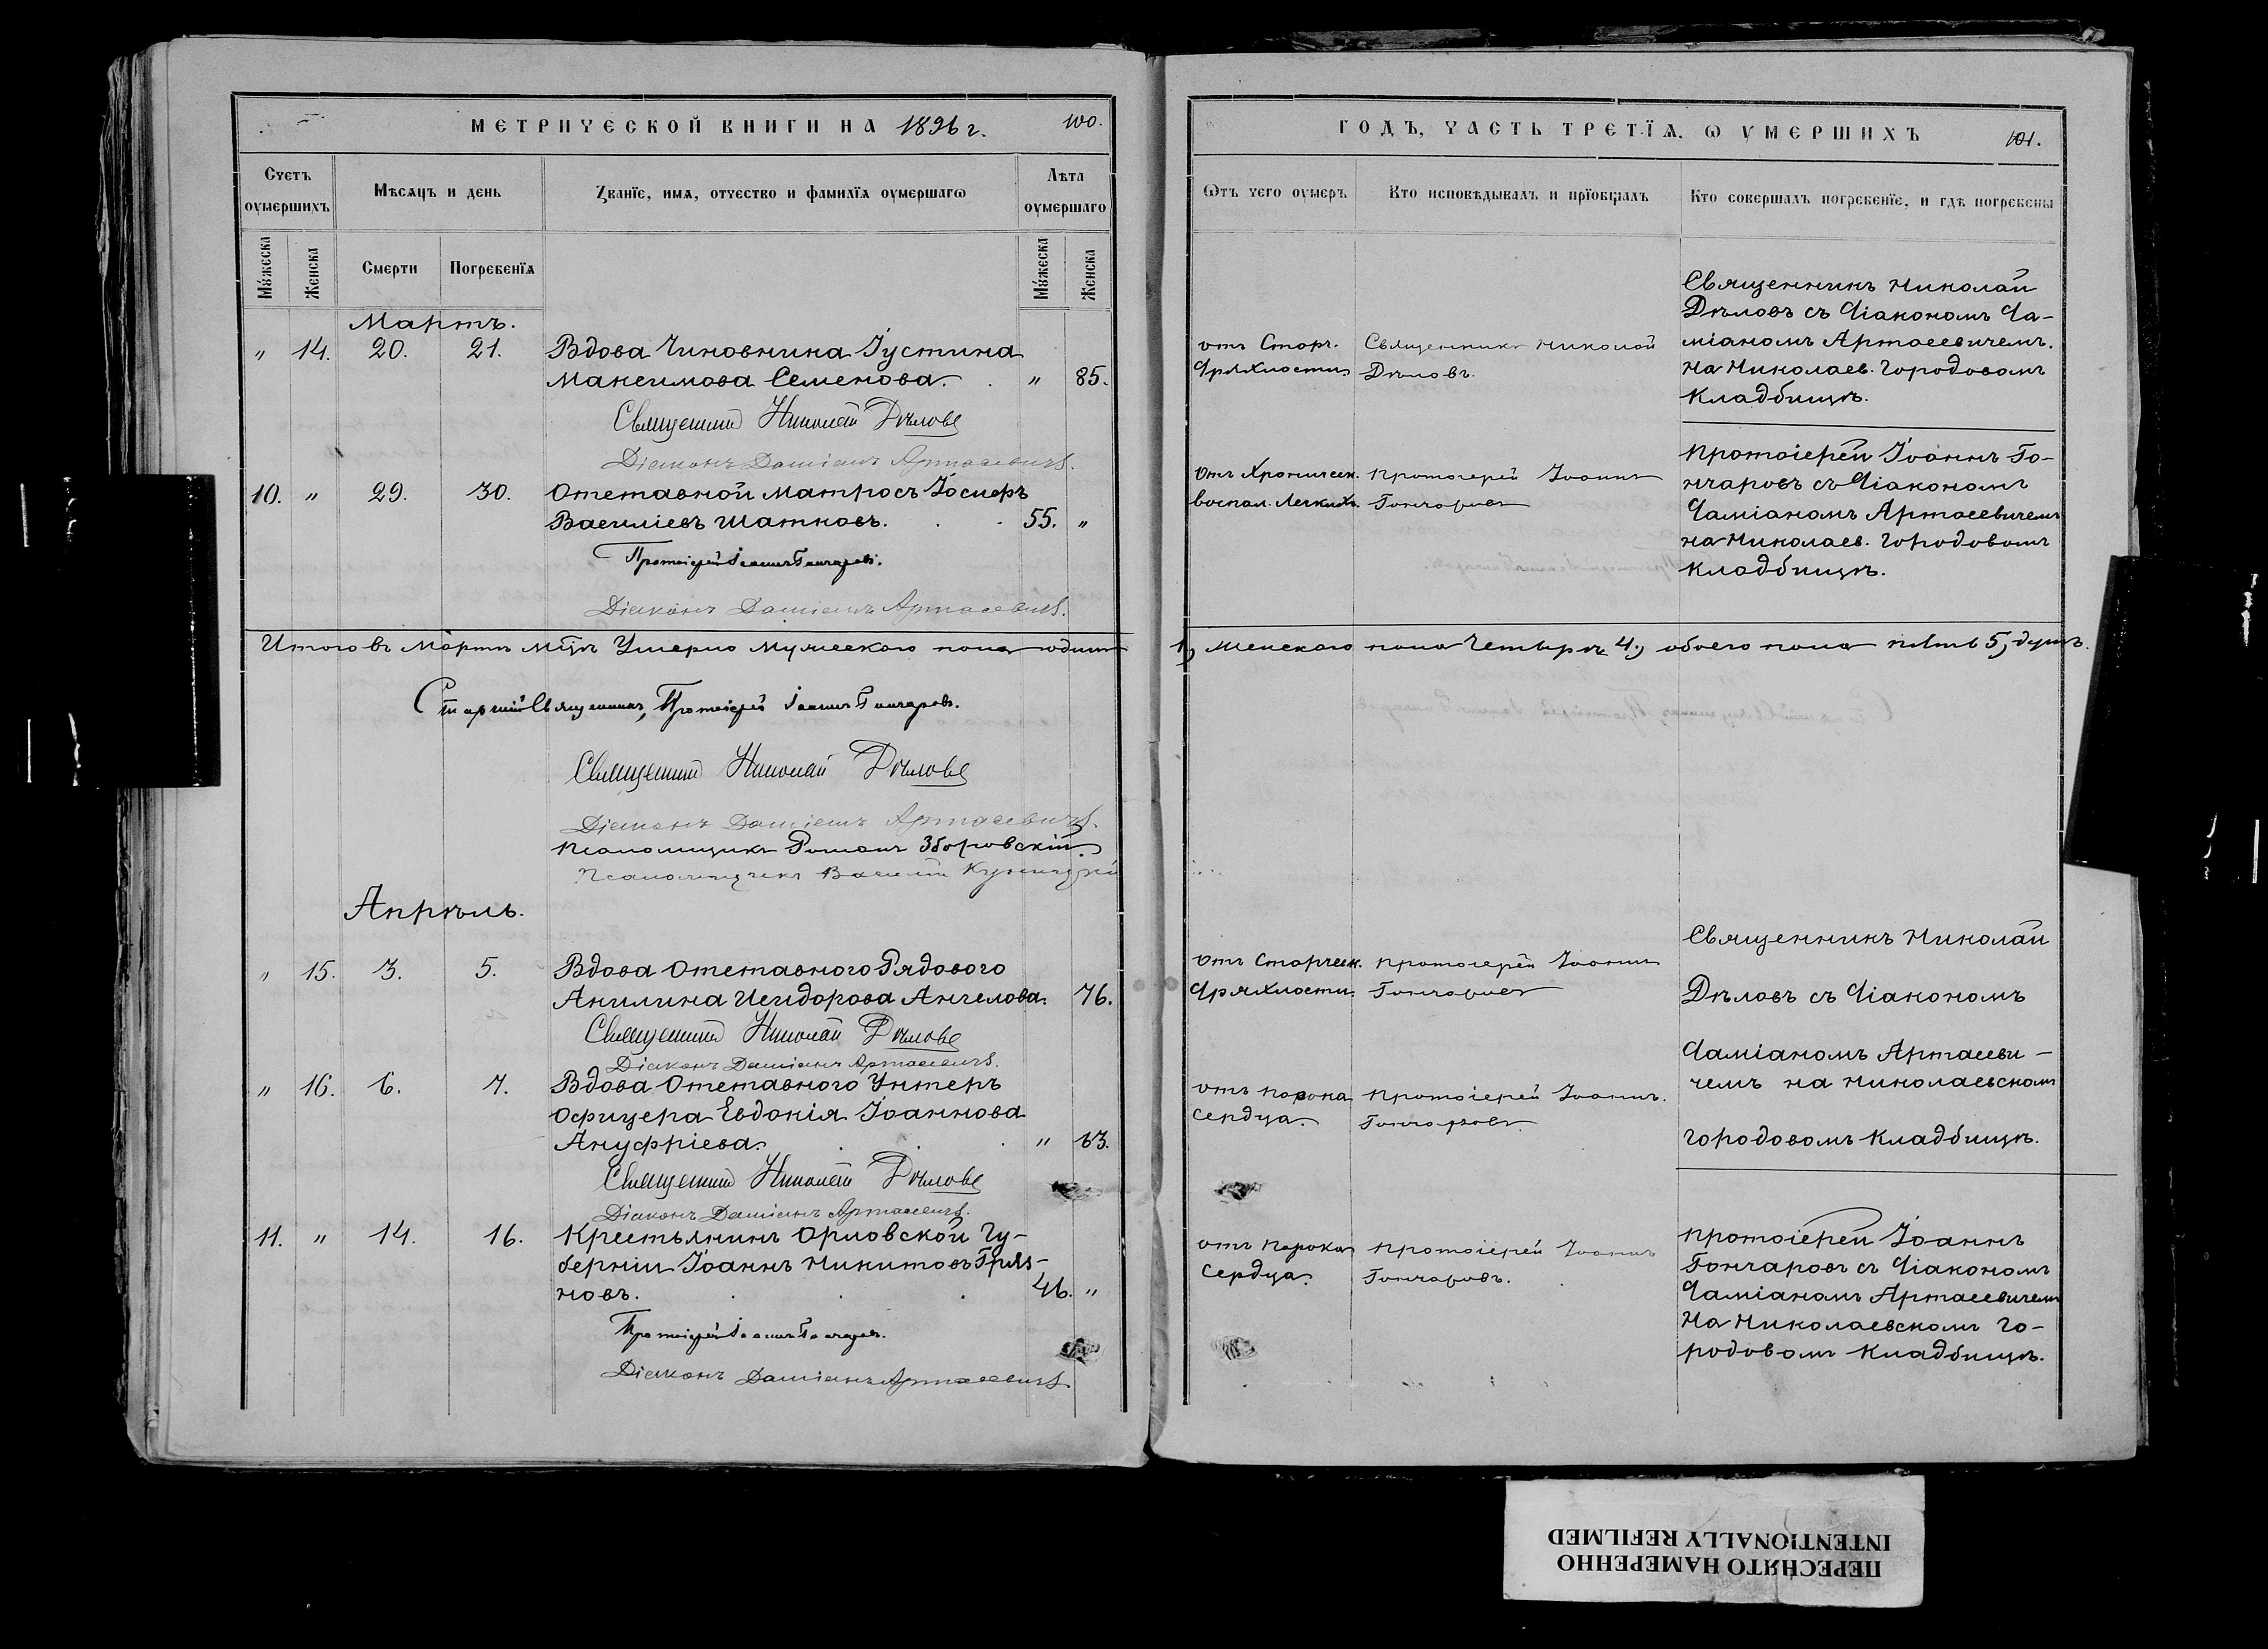 МЕТРИЧЕСКОЙ КНИГИ НА 1896 г. 100.
Счетъ оумершихъ
Мѣсяцъ и день
Званїе, имѧ, отчество и фамилїѧ оумершагѡ
Лѣта оумершаго
Мужеска
Женска
Смерти
Погребенїѧ
Мужеска
Женска
Мартъ.
" 14. 20. 21. Вдова Чиновника Іустина
Максимова Семенова. " 85.
Священникъ Николай Дѣловъ
Діаконъ Даміанъ Артасевичъ.
10. " 29. 30. Отставной Матросъ Іосифъ
Василіевъ Шатковъ. 55. "
Протоіерей Іоаннъ Гончаровъ.
Діаконъ Даміанъ Артасевичъ.
Итого въ Мартѣ мцѣ Умерло мужескаго пола одинъ
Старшій Священникъ, Протоіерей Іоаннъ Гончаровъ.
Священникъ Николай Дѣловъ
Діаконъ Даміанъ Артасевичъ.
Псаломщикъ Романъ Зборовскій.
Псаломщикъ Василій
Апрѣль.
" 15. 3. 5. Вдова Отставного Рядового
Акилина Исидорова Ангелова. 76.
Священникъ Николай Дѣловъ
Діаконъ Даміанъ Артасевичъ.
" 16. 6. 7. Вдова Отставного Унтеръ
Офицера Евдокія Іоаннова
Ануфріева. " 63.
Священникъ Николай Дѣловъ
Діаконъ Даміанъ Артасевичъ.
11. " 14. 16. Крестьянинъ Орловской Гу-
берніи Іоаннъ Никитовъ Гряз-
новъ. 46. "
Протоіерей Іоаннъ Гончаровъ.
Діаконъ Даміанъ Артасевичъ.
ГОДЪ, ЧАСТЬ ТРЕТЇѦ, Ѡ УМЕРШИХЪ 101.
Ѡтъ чего оумеръ
Кто исповѣдывалъ и прїобщалъ
Кто совершалъ погребенїе, и гдѣ погребены
отъ Старч.
Дряхлости.
Священникъ Николай
Дѣловъ.
Священникъ Николай
Дѣловъ съ Діакономъ Да-
міаномъ Артасевичемъ.
на Николаев. Городовомъ
Кладбищѣ.
отъ Хроническ.
воспал. Легкихъ.
Протоіерей Іоаннъ
Гончаровъ
Протоіерей Іоаннъ Го-
нчаровъ съ Діакономъ
Даміаномъ Артасевичемъ
на Николаев. Городовомъ
Кладбищѣ.
1, Женскаго пола Четыре 4, обоего пола пять 5, душъ.
отъ Старческ.
Дряхлости.
Протоіерей Іоаннъ
Гончаровъ
Священникъ Николай
Дѣловъ съ Діакономъ
Даміаномъ Артасеви-
чемъ на Николаевскомъ
Городовомъ Кладбищѣ.
отъ порока
Сердца.
Протоіерей Іоаннъ.
Гончаровъ.
отъ порока
Сердца.
Протоіерей Іоаннъ
Гончаровъ.
Протоіерей Іоаннъ
Гончаровъ съ Діакономъ
Даміаномъ Артасевичемъ
На Николаевскомъ Го-
родовомъ Кладбищѣ.
ПЕРЕСНЯТО НАМЕРЕННО
INTENTIONALLY REFILMED